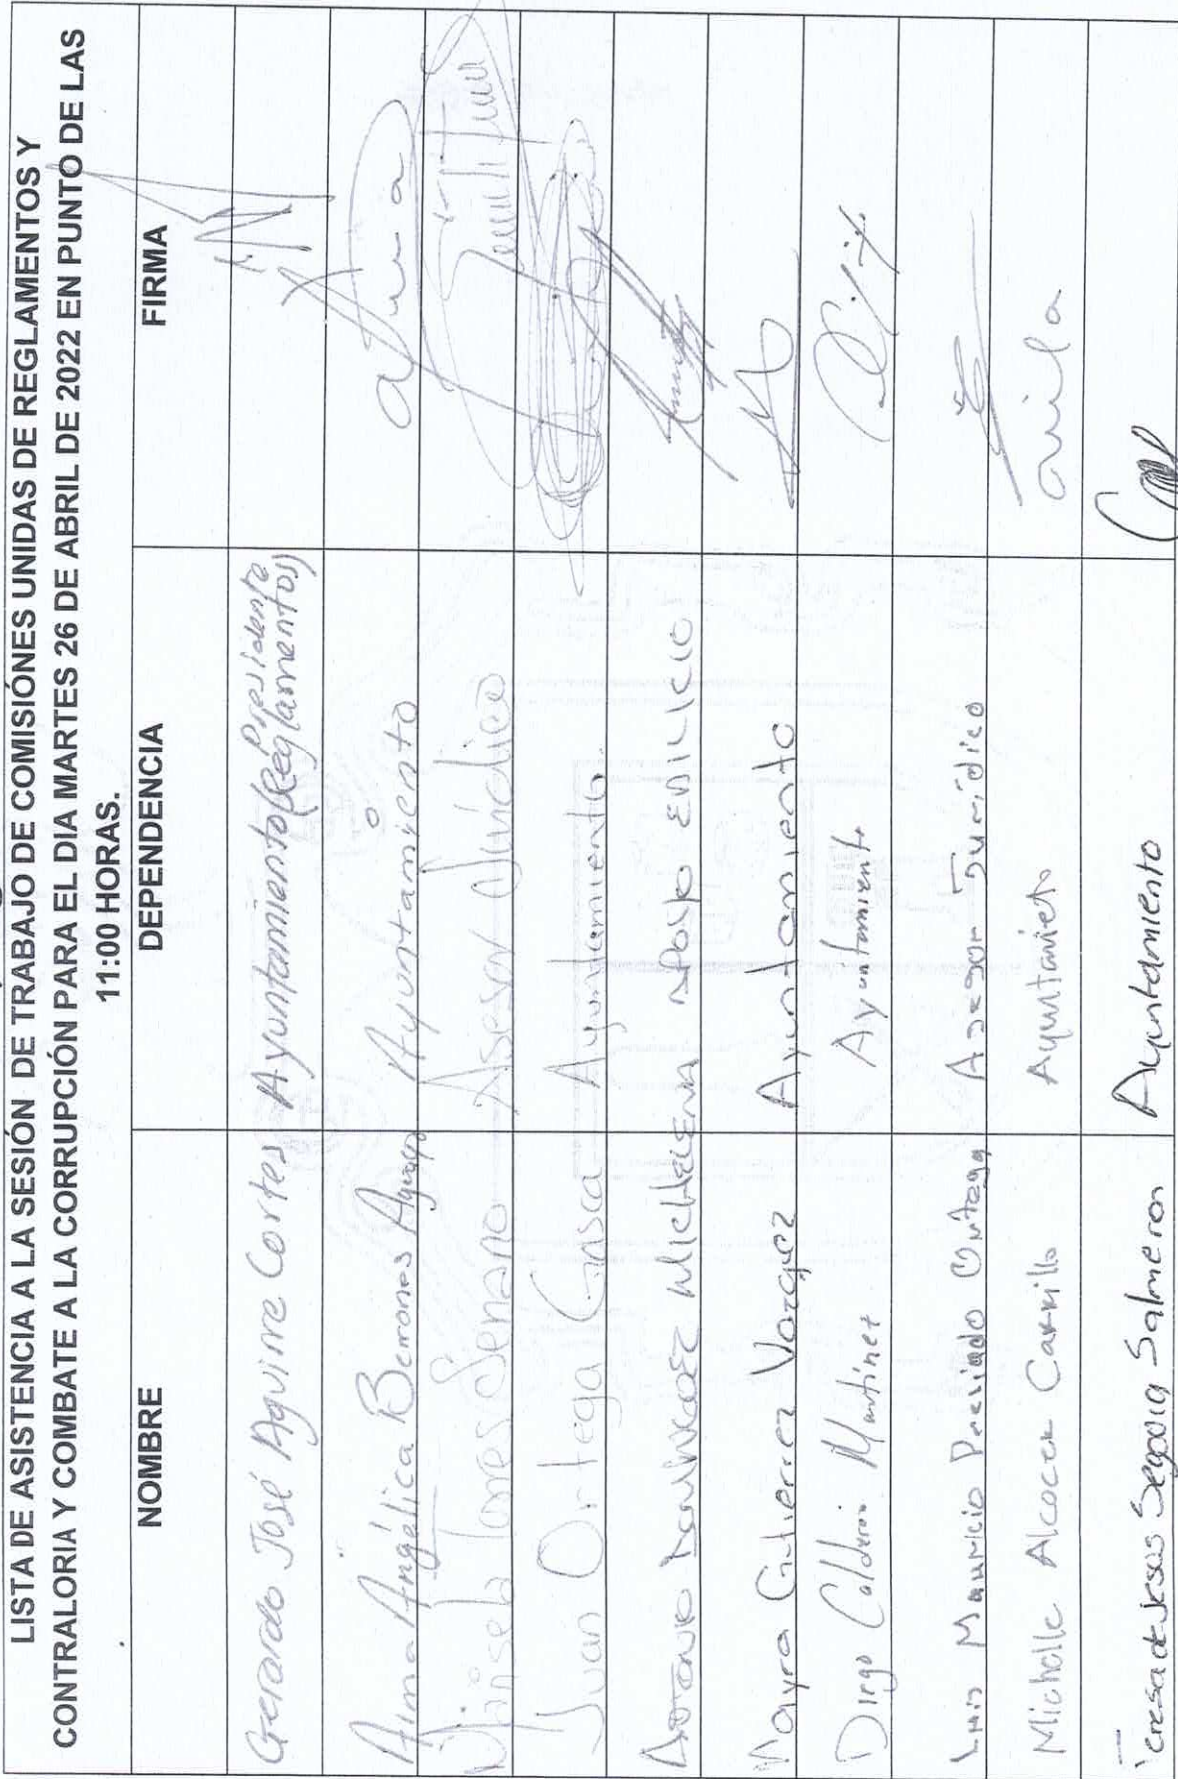 LISTA DE ASISTENCIA A LA SESIÓN DE TRABAJO DE COMISIÓNES UNIDAS DE REGLAMENTOS Y
CONTRALORIA Y COMBATE A LA CORRUPCIÓN PARA EL DIA MARTES 26 DE ABRIL DE 2022 EN PUNTO DE LAS
11:00 HORAS.
NOMBRE DEPENDENCIA FIRMA
Gerardo José Aguirre Cortes Ayuntamiento (Presidente Reglamentos)
Alma Angélica Berrones Aguayo Ayuntamiento Alma
Torres Serrano Asesor Jurídico
Juan Ortega Ayuntamiento
Antonio Michelena Apoyo Edilicio
Mayra Gutierrez Vazquez Ayuntamiento
Diego Calderon Martinez Ayuntamiento
Luis Mauricio Preciado Ortega Asesor Jurídico
Michelle Alcocer Carrillo Ayuntamieto
Teresa de Jesus Segovia Salmeron Ayuntamiento